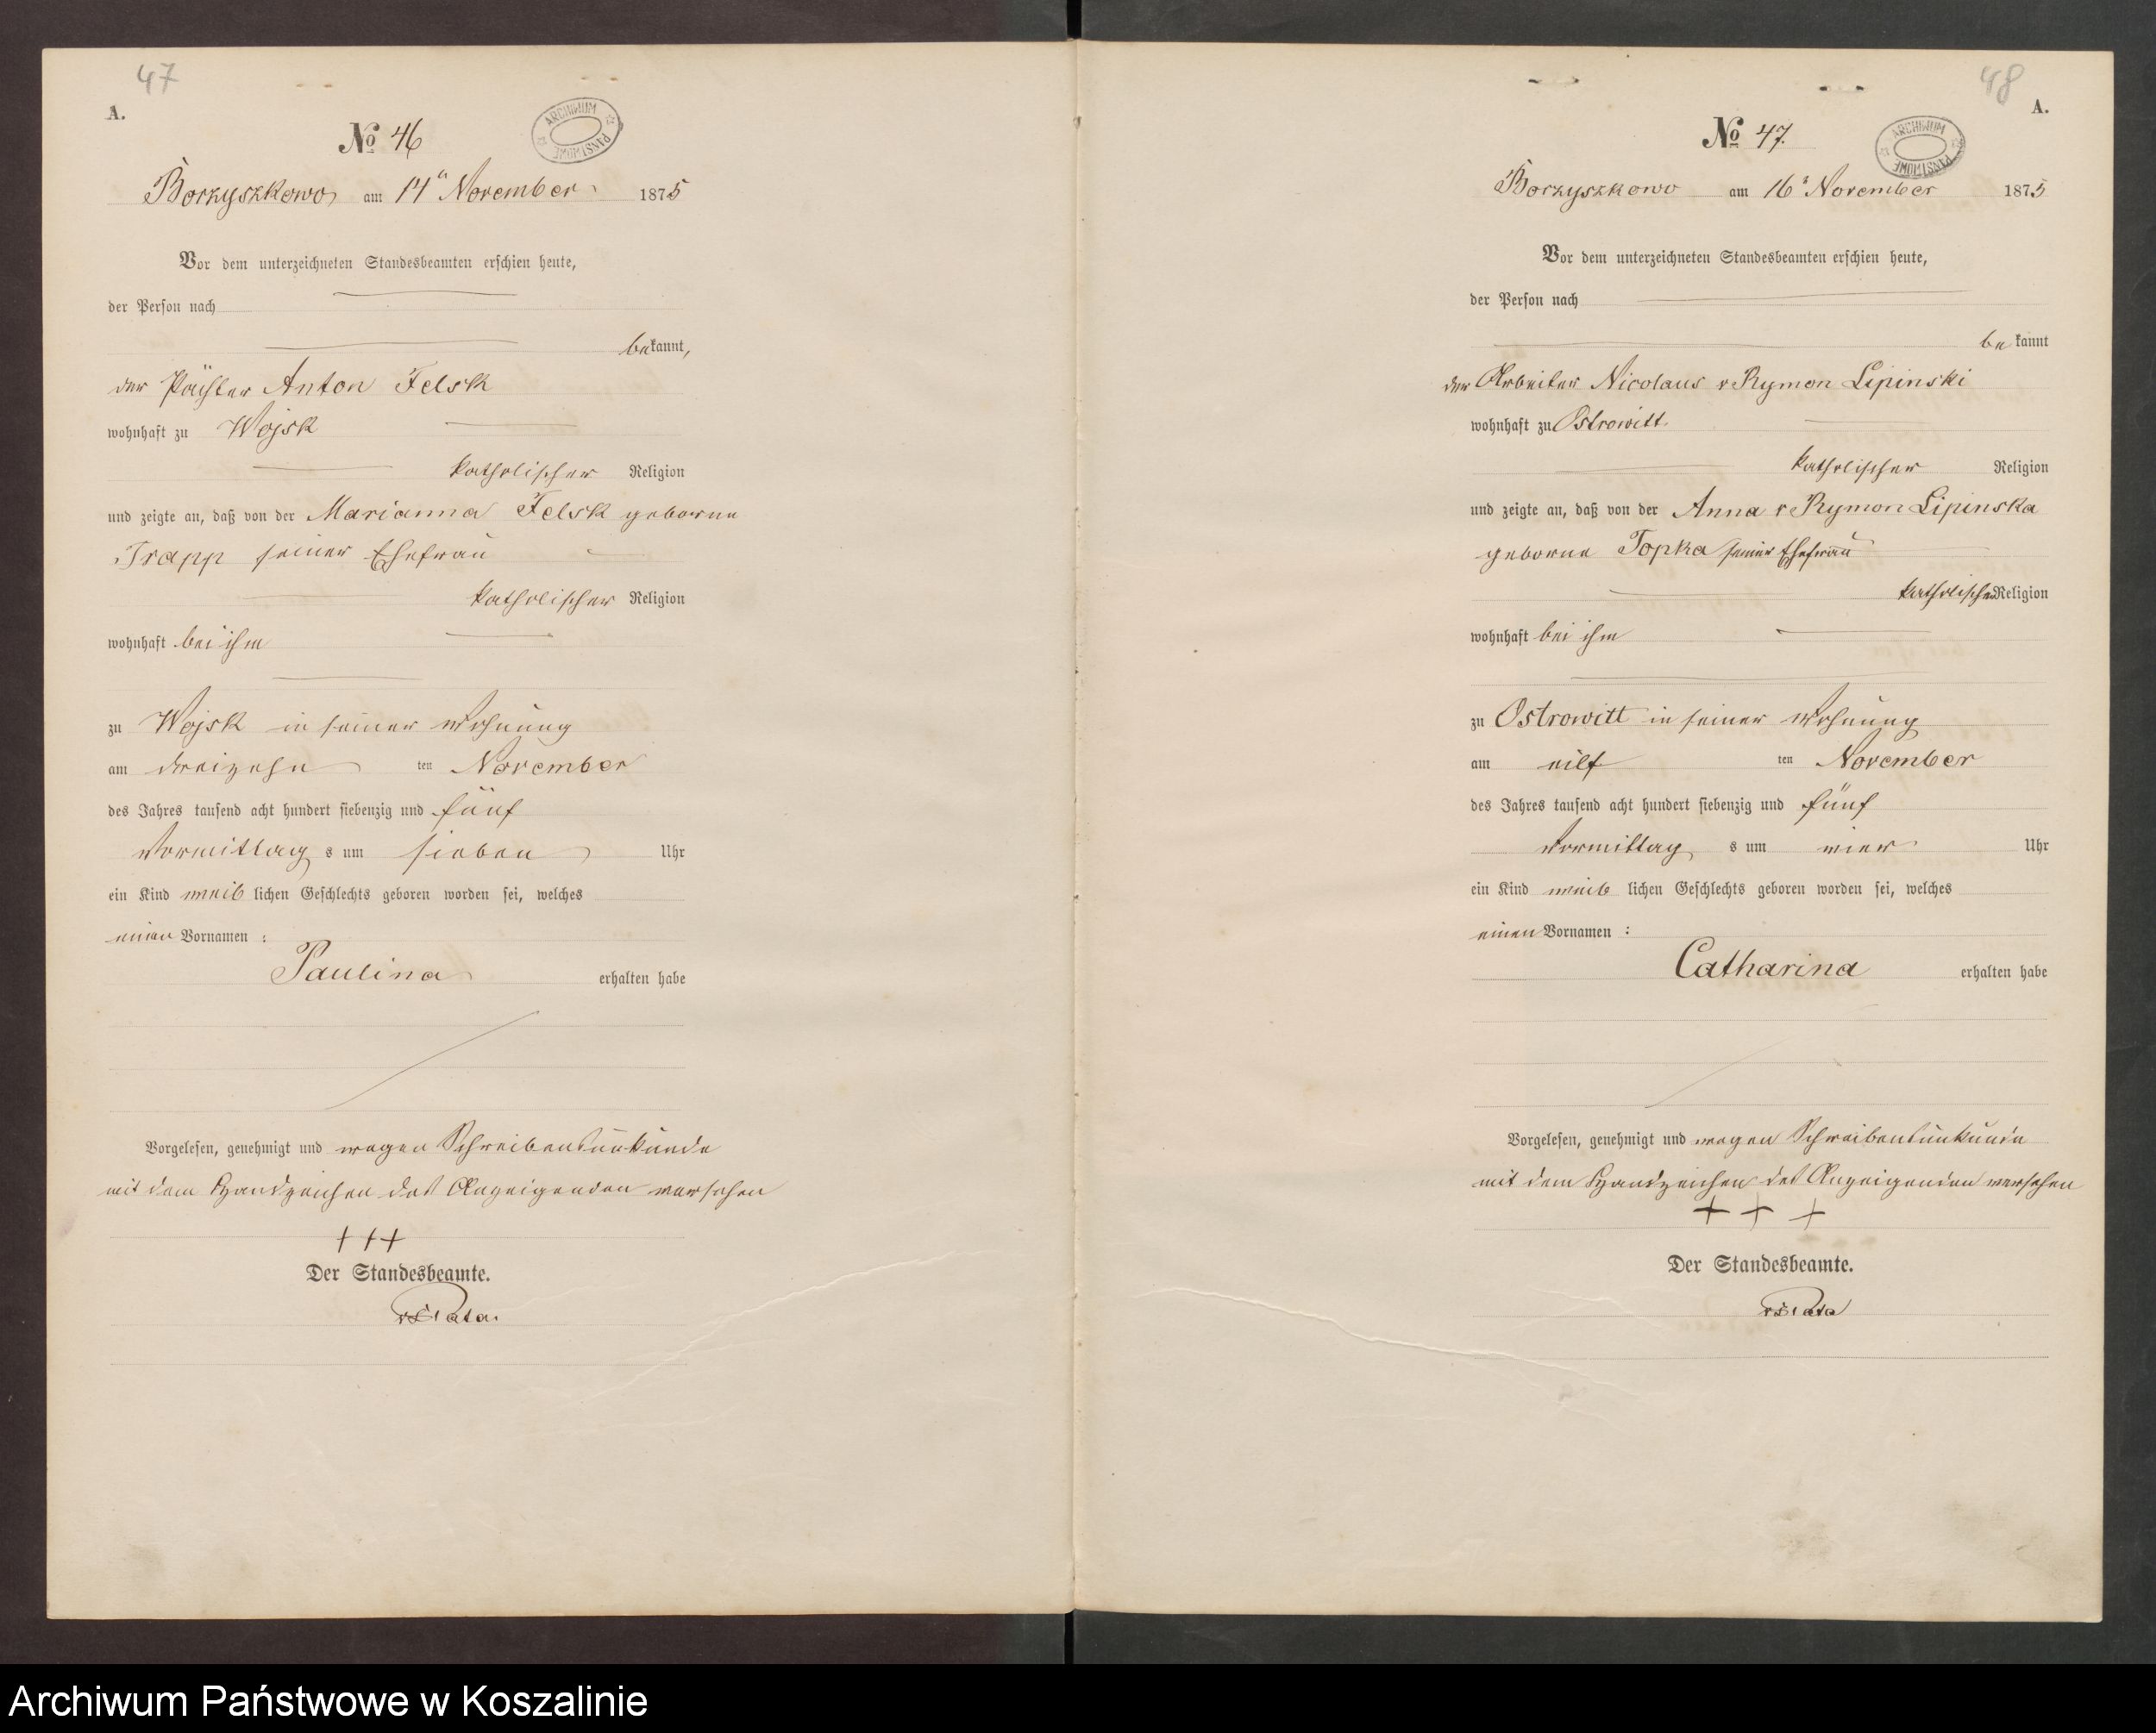 47
A.
No 46
ARCHIWUM PAŃSTWOWE
Borzyszkowo am 14ten November 1875
Vor dem unterzeichneten Standesbeamten erschien heute,
der Person nach
bekannt,
der Pächter Anton Felsk
wohnhaft zu Wojsk
katholischer Religion
und zeigte an, daß von der Marianna Felsk geborne
Trapp seiner Ehefrau
katholischer Religion
wohnhaft bei ihm
zu Wojsk in seiner Wohnung
am dreizehn ten November
des Jahres tausend acht hundert siebenzig und fünf
Vormittag s um sieben Uhr
ein Kind weib lichen Geschlechts geboren worden sei, welches
einen Vornamen :
Paulina erhalten habe
Vorgelesen, genehmigt und wegen Schreibensunkunde
mit dem Handzeichen des Anzeigenden versehen
+++
Der Standesbeamte.
48
A.
No 47.
ARCHIWUM PAŃSTWOWE
Borzyszkowo am 16 November 1875
Vor dem unterzeichneten Standesbeamten erschien heute,
der Person nach
be kannt
der Arbeiter Nicolaus v Rymon Lipinski
wohnhaft zu Ostrowitt.
katholischer Religion
und zeigte an, daß von der Anna v Rymon Lipinska
geborne Topka seiner Ehefrau
katholischer Religion
wohnhaft bei ihm
zu Ostrowitt in seiner Wohnung
am eilf ten November
des Jahres tausend acht hundert siebenzig und fünf
Vormittag s um vier Uhr
ein Kind weib lichen Geschlechts geboren worden sei, welches
einen Vornamen :
Catharina erhalten habe
Vorgelesen, genehmigt und wegen Schreibensunkunde
mit dem Handzeichen des Anzeigenden versehen
+ + +
Der Standesbeamte.
Archiwum Państwowe w Koszalinie